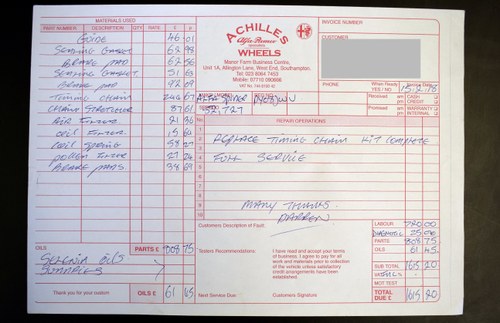 MATERIALS USED
PART NUMBER DESCRIPTION QTY. RATE £ p
GUIDE 46 01
SEALING GASKET
BRAKE PAD
SEALING GASKET
SEALING GASKET 51 63
BRAKE PAD
TIMING CHAIN 246 67
CHAIN STRETCHER 87 61
AIR FILTER 21 36
OIL FILTER 15
COIL SPRING 58 27
POLLEN FILTER 27 24
BRAKE PADS 98 69
PARTS £ 908 75
OILS
SELENIA OILS
SUNDRIES
Thank you for your custom OILS £ 61 45
ACHILLES
Alfa Romeo
WHEELS
Manor Farm Business Centre,
Unit 1A, Allington Lane, West End, Southampton.
Tel: 023 8064 7453
Mobile: 07710 090686
INVOICE NUMBER
CUSTOMER
PHONE
When Ready
YES / NO
15.2.18
ALFA SPIDER
52,727
Received am pm
Promised am pm
CASH
CREDIT
WARRANTY
INTERNAL
No. REPAIR OPERATIONS
1
2 REPLACE TIMING CHAIN KIT COMPLETE
3
4 FULL SERVICE
5
6
7
8
9 MANY THANKS
10 DARREN
Customers Description of Fault:
Sellers Recommendations:
I have read and accept your terms
of business. I agree to pay for all
work and materials prior to collection
of the vehicle unless satisfactory
credit arrangements have been
established.
Next Service Due:
Customers Signature
LABOUR 720.00
25.00
PARTS 808 75
OILS 61 45
SUB TOTAL 1615 20
MOT/VAT
TOTAL DUE £ 1615 20